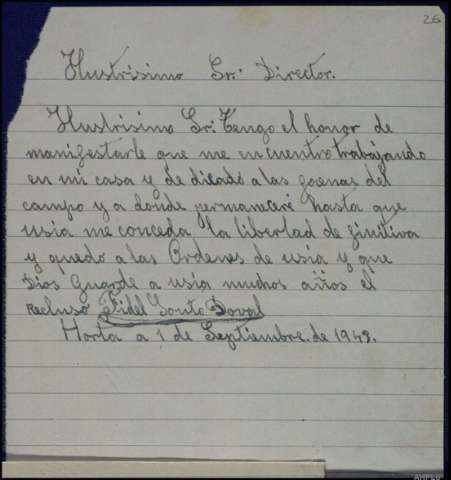 26
Ilustrisimo Sr: Director.
Ilustrisimo Sr: Tengo el honor de
manifestarle que me encuentro trabajando
en mi casa y de dicado a las faenas del
campo y a donde permaneceré hasta que
usia me conceda la libertad de finitiva
y quedo a las Ordenes de usia y que
Dios Guarde a usia muchos años el
Recluso Fidel Souto Doval
Horta a 1 de Septiembre. de 1943.